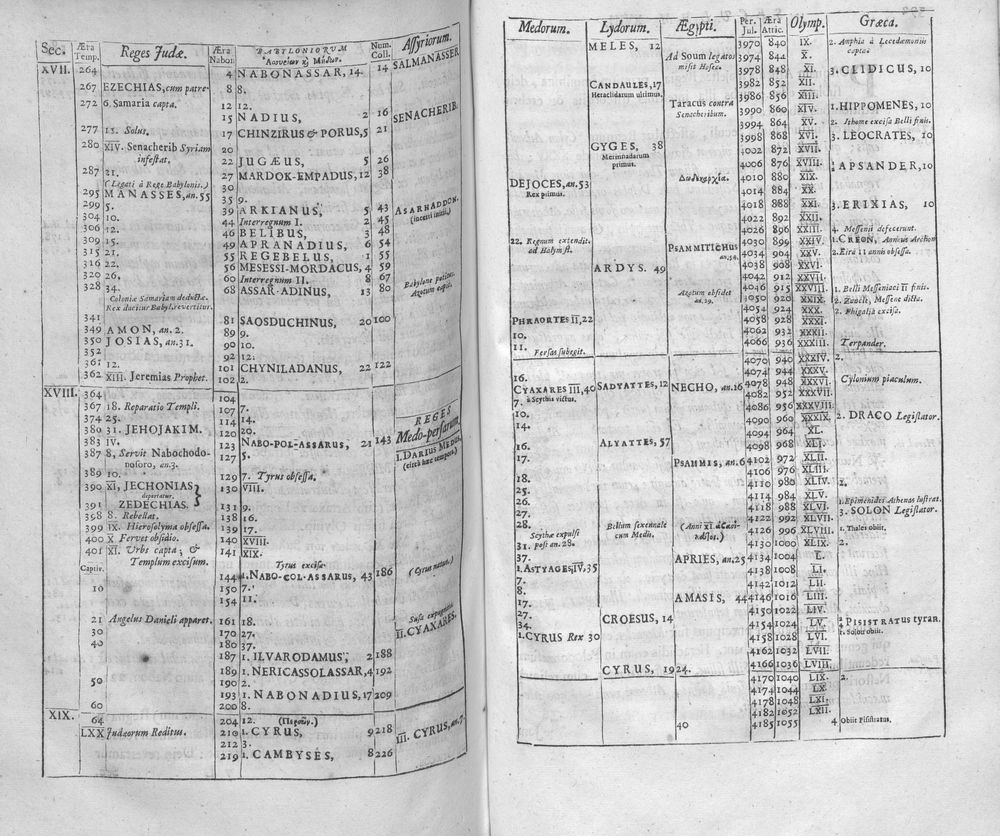 Sec. Æra Temp. Reges Judæ. Æra Nabon. BABYLONIORVM Num. Coll. Assyriorum.
XVII. 264 4 NABONASSAR, 14. 14 SALMANASSER
267 EZECHIAS, cum patre. 8 8.
272 6. Samaria capta. 12 12.
15 NADIUS, 2 16 SENACHERIB.
277 15. Solus. 17 CHINZIRUS & PORUS, 5 21
280 XIV. Senacherib Syriam 20
infestat. 22 JUGÆUS, 5 26
287 21. 27 MARDOK-EMPADUS, 12 38
(Legati à Rege Babylonis.) 30
295 MANASSES, an. 55 35 9.
299 5. 39 ARKIANUS, 5 43 ASARHADDON.
304 10. 44 Interregnum I. 2 45
306 12. 46 BELIBUS, 3 48
309 15. 49 APRANADIUS, 6 54
315 21. 55 REGEBELUS, 1 55
316 22. 56 MESESSI-MORDACUS, 4 59
320 26. 60 Interregnum II. 8 67 Babylone potitus.
328 34. 68 ASSAR-ADINUS, 13 80 Azotum capit.
Coloniæ Samariam deductæ.
Rex ducitur Babyl. revertitur.
341 81 SAOSDUCHINUS, 20 100
349 AMON, an. 2. 89 9.
350 JOSIAS, an. 31. 90 10.
352 92 12.
361 12. 101 CHYNILADANUS, 22 122
362 XIII. Jeremias Prophet. 102 2.
XVIII. 364 104
367 18. Reparatio Templi. 107 7. REGES
374 25. 114 14. Medo-persarum.
380 31. JEHOJAKIM. 120 20.
383 IV. 123 NABO-POL-ASSARUS, 21 143 I. DARIUS MEDUS,
387 8. Servit Nabochodo- 127 5. (circà hæc tempora)
nosoro, an. 3.
389 10. 129 7. Tyrus obsessa.
390 XI, JECHONIAS 130 VIII.
deportatur.
391 ZEDECHIAS. 131 9.
398 8. Rebellat. 138 16.
399 IX. Hierosolyma obsessa. 139 17.
400 X Fervet obsidio. 140 XVIII.
401 XI. Urbs capta; & 141 XIX.
Captiv. Templum excisum. Tyrus excisa.
144 1. NABO-COL-ASSARUS, 43 186 (Cyrus natus.)
10 150 7.
154 11.
21 Angelus Danieli apparet. 161 18.
30 170 27. II. CYAXARES.
40 180 37.
187 1. ILVARODAMUS, 2 188
189 1. NERICASSOLASSAR, 4 192
50 190 2.
193 1. NABONADIUS, 17 209
60 200 8.
XIX. 64 204 12.
LXX Judæorum Reditus. 210 1. CYRUS, 9 218 III. CYRUS, an. 7.
212 3.
219 1. CAMBYSES, 8 226
Medorum. Lydorum. Ægypti. Per. Jul. Æra Attic. Olymp. Græca.
MELES, 12 3970 840 IX. 2. Amphia à Lacedæmoniis
Ad Soum legatos 3974 844 X. capta.
misit Hosea. 3978 848 XI. 3. CLIDICUS, 10
CANDAULES, 17 3982 852 XII.
Heraclidarum ultimus. 3986 856 XIII.
Taracus contra 3990 860 XIV. 1. HIPPOMENES, 10
Senacheribum. 3994 864 XV. 2. Ithome excisa Belli finis.
3998 868 XVI. 3. LEOCRATES, 10
GYGES, 38 4002 872 XVII.
Mermnadarum 4006 876 XVIII. APSANDER, 10
primus.
DEJOCES, an. 53 4010 880 XIX.
Rex primus. 4014 884 XX.
4018 888 XXI. 3. ERIXIAS, 10
4022 892 XXII.
4026 896 XXIII. 4. Messenii defecerunt.
22. Regnum extendit. PSAMMITICHUS 4030 899 XXIV. 1. CREON, Annuus Archon
ad Halym fl. an. 54. 4034 904 XXV. 2. Eira 11 annis obsessa.
ARDYS. 49 4038 908 XXVI.
4042 912 XXVII.
4046 915 XXVIII. 1. Belli Messeniaci II finis.
Azotum obsidet 3050 920 XXIX. 2. Zancle, Messene dicta.
an. 29. 4054 924 XXX. 2. Phigalia excisa.
PHRAORTES II, 22 4058 928 XXXI.
10. 4062 932 XXXII.
11. Persas subegit. 4066 936 XXXIII. Terpander.
4070 940 XXXIV. 2.
16. 4074 944 XXXV.
CYAXARES III, 40 SADYATTES, 12 NECHO, an. 16 4078 948 XXXVI. Cylonium piaculum.
7. à Scythis victus. 4082 952 XXXVII.
10. 4086 956 XXXVIII.
14. 4090 960 XXXIX. 2. DRACO Legislator.
4094 964 XL.
16. ALYATTES, 57 4098 968 XLI.
17. PSAMMIS, an. 6 4102 972 XLII.
4106 976 XLIII.
18. 4110 980 XLIV. 2.
25. 4114 984 XLV.
26. 4118 988 XLVI. 1. Epimenides Athenas lustrat.
27. 4122 992 XLVII. 3. SOLON Legislator.
28. Bellum sexennale (Anni XI 4126 996 XLVIII. 1. Thales obiit.
Scythæ expulsi cum Medis.
31. post an. 28. 4130 1000 XLIX. 2.
37. APRIES, an. 25 4134 1004 L.
1. ASTYAGES, IV, 35 4138 1008 LI.
7. 4142 1012 LII.
8. AMASIS, 44 4146 1016 LIII.
17. 4150 1022 LIV.
27. CROESUS, 14 4154 1024 LV. PISISTRATUS tyran.
34. 4158 1028 LVI. 1. Solon obiit.
1. CYRUS Rex 30 4162 1032 LVII.
4166 1036 LVIII.
CYRUS, 1924. 4170 1040 LIX. 2.
4174 1044 LX.
4178 1048 LXI.
4182 1052 LXII.
40 4185 1055 4 Obiit Pisistratus.